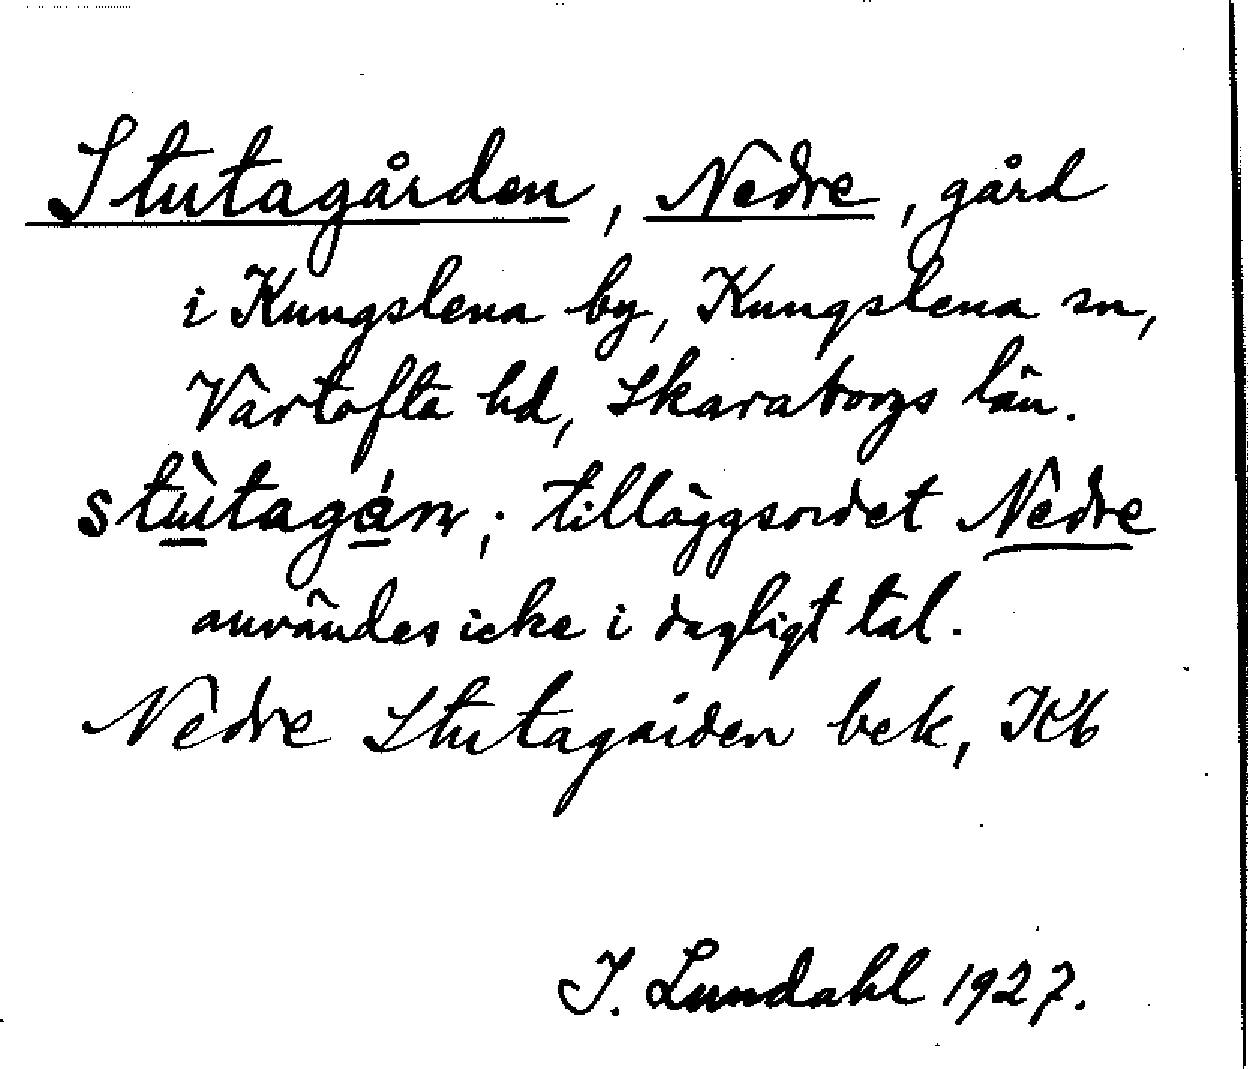 Stutagården, Nedre, gård
i Kungslena by, Kungslena sn,
Vartofta hd, Skaraborgs län.
stùtagán; tilläggsordet Nedre
användes icke i dagligt tal.
Nedre Stutagården bek, JKb
I. Lundahl 1927.